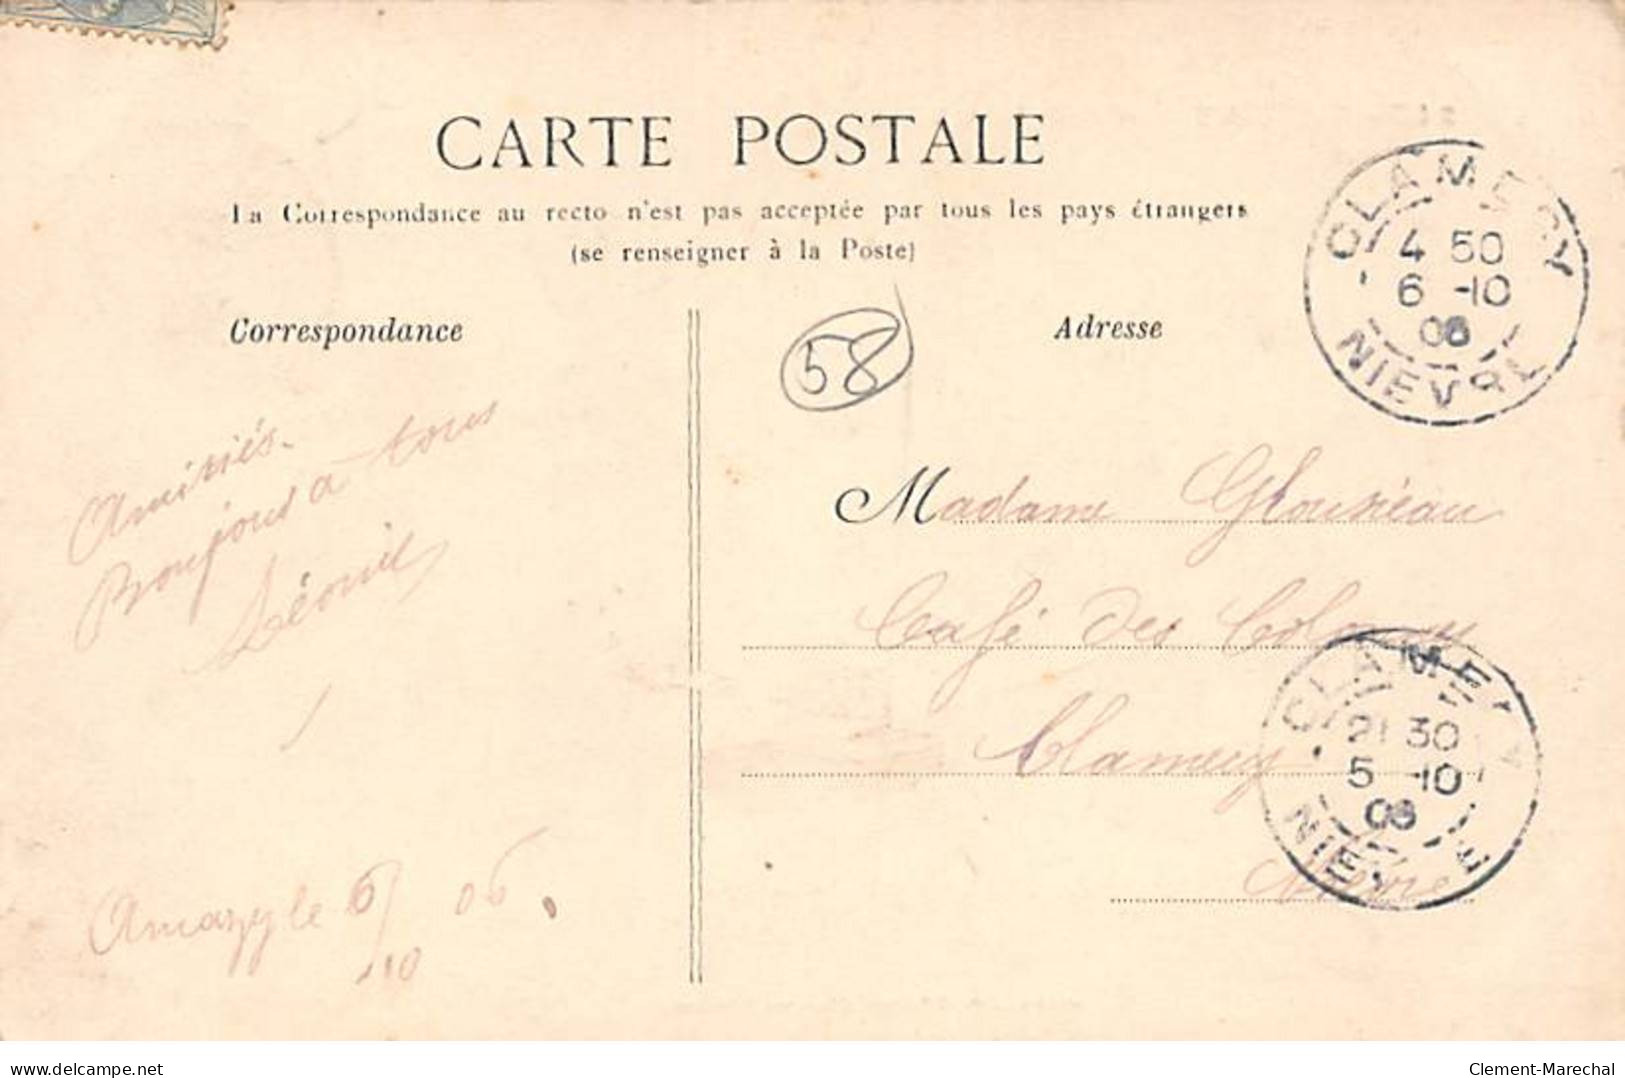 CARTE POSTALE
La Correspondance au recto n'est pas acceptée par tous les pays étrangers
(se renseigner à la Poste)
Correspondance
Adresse
58
CLAMECY
4 50
6 -10
06
NIEVRE
Amitiés.
Bonjour a tous
Léonie
Amazy le 6/10 06.
Madame
Café des
Clamecy
Nièvre
CLAMECY
21 30
5 -10
06
NIEVRE
delcampe.com
Clement-Marechal